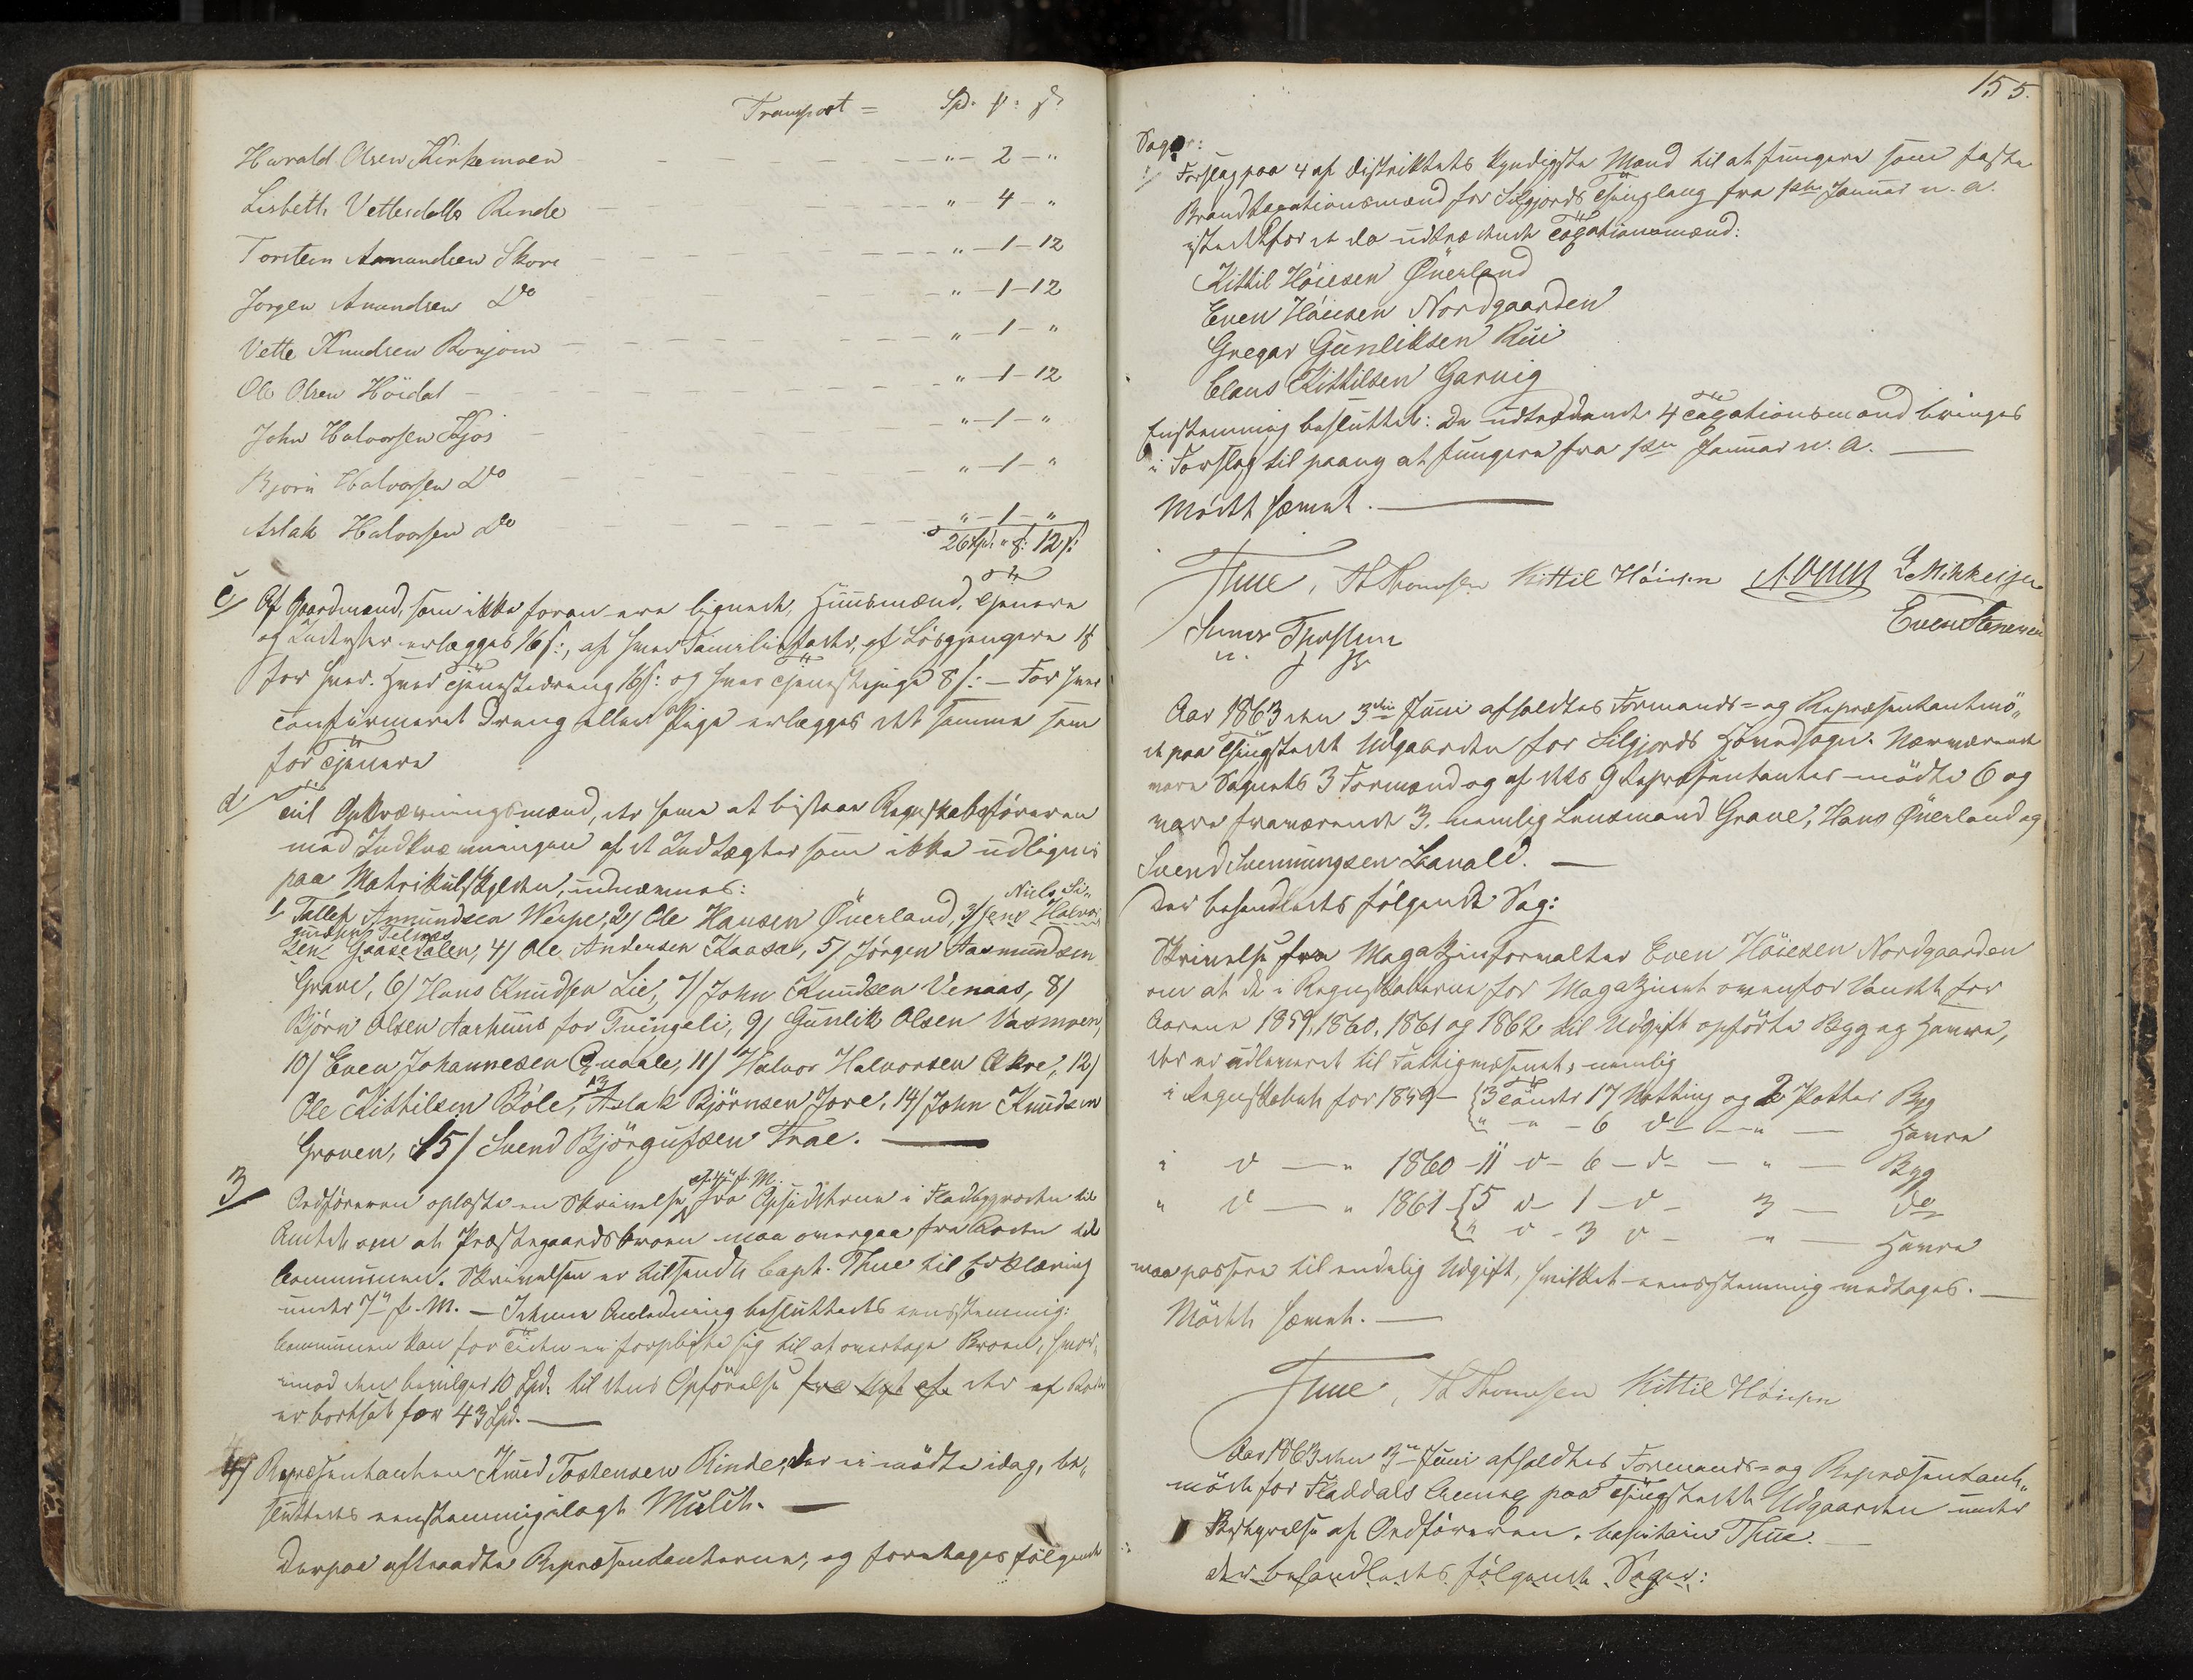 Transport = Spd. ß: ß:
Harald Olsen Kirkemoen " - 2 - "
Lisbeth Vettesdatter Rinde " - 4 - "
Torsten Amundsen Skore " - 1 - 12
Jorgen Amundsen Do " - 1 - 12
Vette Knudsen Bonjom " - 1 - "
Ole Olsen Höidal " - 1 - 12
John Halvorsen Kjos " - 1 - "
Bjorn Halvorsen Do " - 1 - "
Aslak Halvorsen Do " - 1 - "
26 Spd. " ß: 12 ß:
c/ Af Gaardmænd, som ikke foran ere lignede, Huusmænd, Tjenere
og Inderster erlægges 16 ß:, af hver Familiefader, af Lösgjengere 18
for hver. Hver Tjenestedreng 16 ß: og hver Tjenestepige 8 ß: – For hver
confirmeret Dreng eller Pige erlægges det samme som
for Tjenere
d/ Til Opkrævningsmænd, der have at bistaae Regnskabsföreren
med Indkrævningen af de Indtægter som ikke udlignes
paa Matrikulskylden, udnævnes:
1 Tallef Annundsen Werpe, 2/ Ole Hansen Överland, 3/ Jens Halvor Niels Si"
gurdsen Telnæs
sen Gaasedalen, 4/ Ole Andersen Kaasa, 5/ Jörgen Aasmundsen
Grave, 6/ Hans Knudsen Lie, 7/ John Knudsen Venaas, 8/
Björn Olsen Aarhuus for Tvingeli, 9/ Gunlik Olsen Vasmoen,
10/ Even Johannesen Qvaale, 11/ Halvor Halvorsen Økre, 12/
Ole Kittilsen Böle, 13 Aslak Björnsen Jore, 14/ John Knudsen
Groven, 15/ Svend Björgufsen Trae.
3 Ordföreren oplæste en Skrivelse fra Opsidderne i Fladbygroden til
Amtet om at Præstegaardsbroen maa overgaa fra Roden til
Communen. Skrivelsen er tilsendt Capt. Thue til Erklæring
under 7de f. M. – I denne Anledning besluttedes eensstemmig:
Communen kan for Tiden ei forpligte sig til at overtage Broen, hvor"
imod den bevilger 10 Spd. til dens Opförelse fra det af der af Roden
er bortsat for 43 Spd.
4/ Repræsentanten Knud Tostensen Rinde, der ei mödte idag, be"
sluttedes eenstemmig ilagt Mulct.
Derpaa aftraadte Repræsentanterne, og foretoges fölgende
155.
Sager:
1/ Forslag paa 4 af Distriktets kyndigste Mænd til at fungere som faste
Brandtaxationsmænd for Silgjords Thinglaug fra 1ste Januar n. a.
istedetfor de da udtrædende Taxationsmænd:
Kittil Höiesen Överland
Even Höiesen Nordgaarden
Gregar Gunliksen Rui
Claus Kittilsen Garvig
Enstemmig besluttet: De udtrædende 4 Taxationsmænd bringes
i Forslag til paany at fungere fra 1ste Januar n. A.
Mödet hævet.
Thue, Th Thomsen Kittil Höiesen L Mikkelsen
Even Stenersen
Aar 1863 den 3die Juni afholdtes Formands- og Repræsentantmö"
de paa Thingstedet Utgaarden for Silgjords Hovedsogn. Nærværende
vare Sognets 3 Formænd og af dets 9 Repræsentanter mödte 6 og
vare fraværende 3. nemlig Lensmand Grave, Hans Överland og
Svend Svennungsen Laavald.
Der behandledes fölgende Sag:
Skrivelse fra Magazinforvalter Even Höiesen Nordgaarden
om at de i Regnskaberne for Magazinet ovenfor Vandet for
Aarene 1859, 1860, 1861 og 1862 til Udgift opförte Byg og Havre,
der er udleveret til Fattigvæsenet, nemlig
i Regnskabet for 1859 – 3 Tönder 17 Sætting og 2 Potter Byg
" - " - 6 do - " - Havre
i do - " 1860 - 11 do - 6 - do - " - Byg
" do - " 1861 5 do - 1 - do - 3 - do
" do - 3 do - " - Havre
maa passere til endelig Udgift, hvilket eensstemmig vedtoges.
Mödet hævet.
Thue, Th Thomsen Kittil Höiesen
Aar 1863 den 3die Juni afholdtes Formands- og Repræsentant"
möde for Fladdals Annex paa Thingstedet Udgaarden under
Bestyrelse af Ordföreren. Capitain Thue.
Der behandledes fölgende Sager: